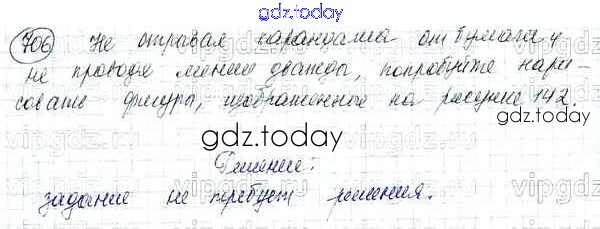 gdz.today
706 Не отрывая карандаша от бумаги и
не проводя линии дважды, попробуйте нари-
совать фигуры, изображенные на рисунке 142.
gdz.today
Решение:
задание не требует решения.
gdz.today
vipgdz.ru